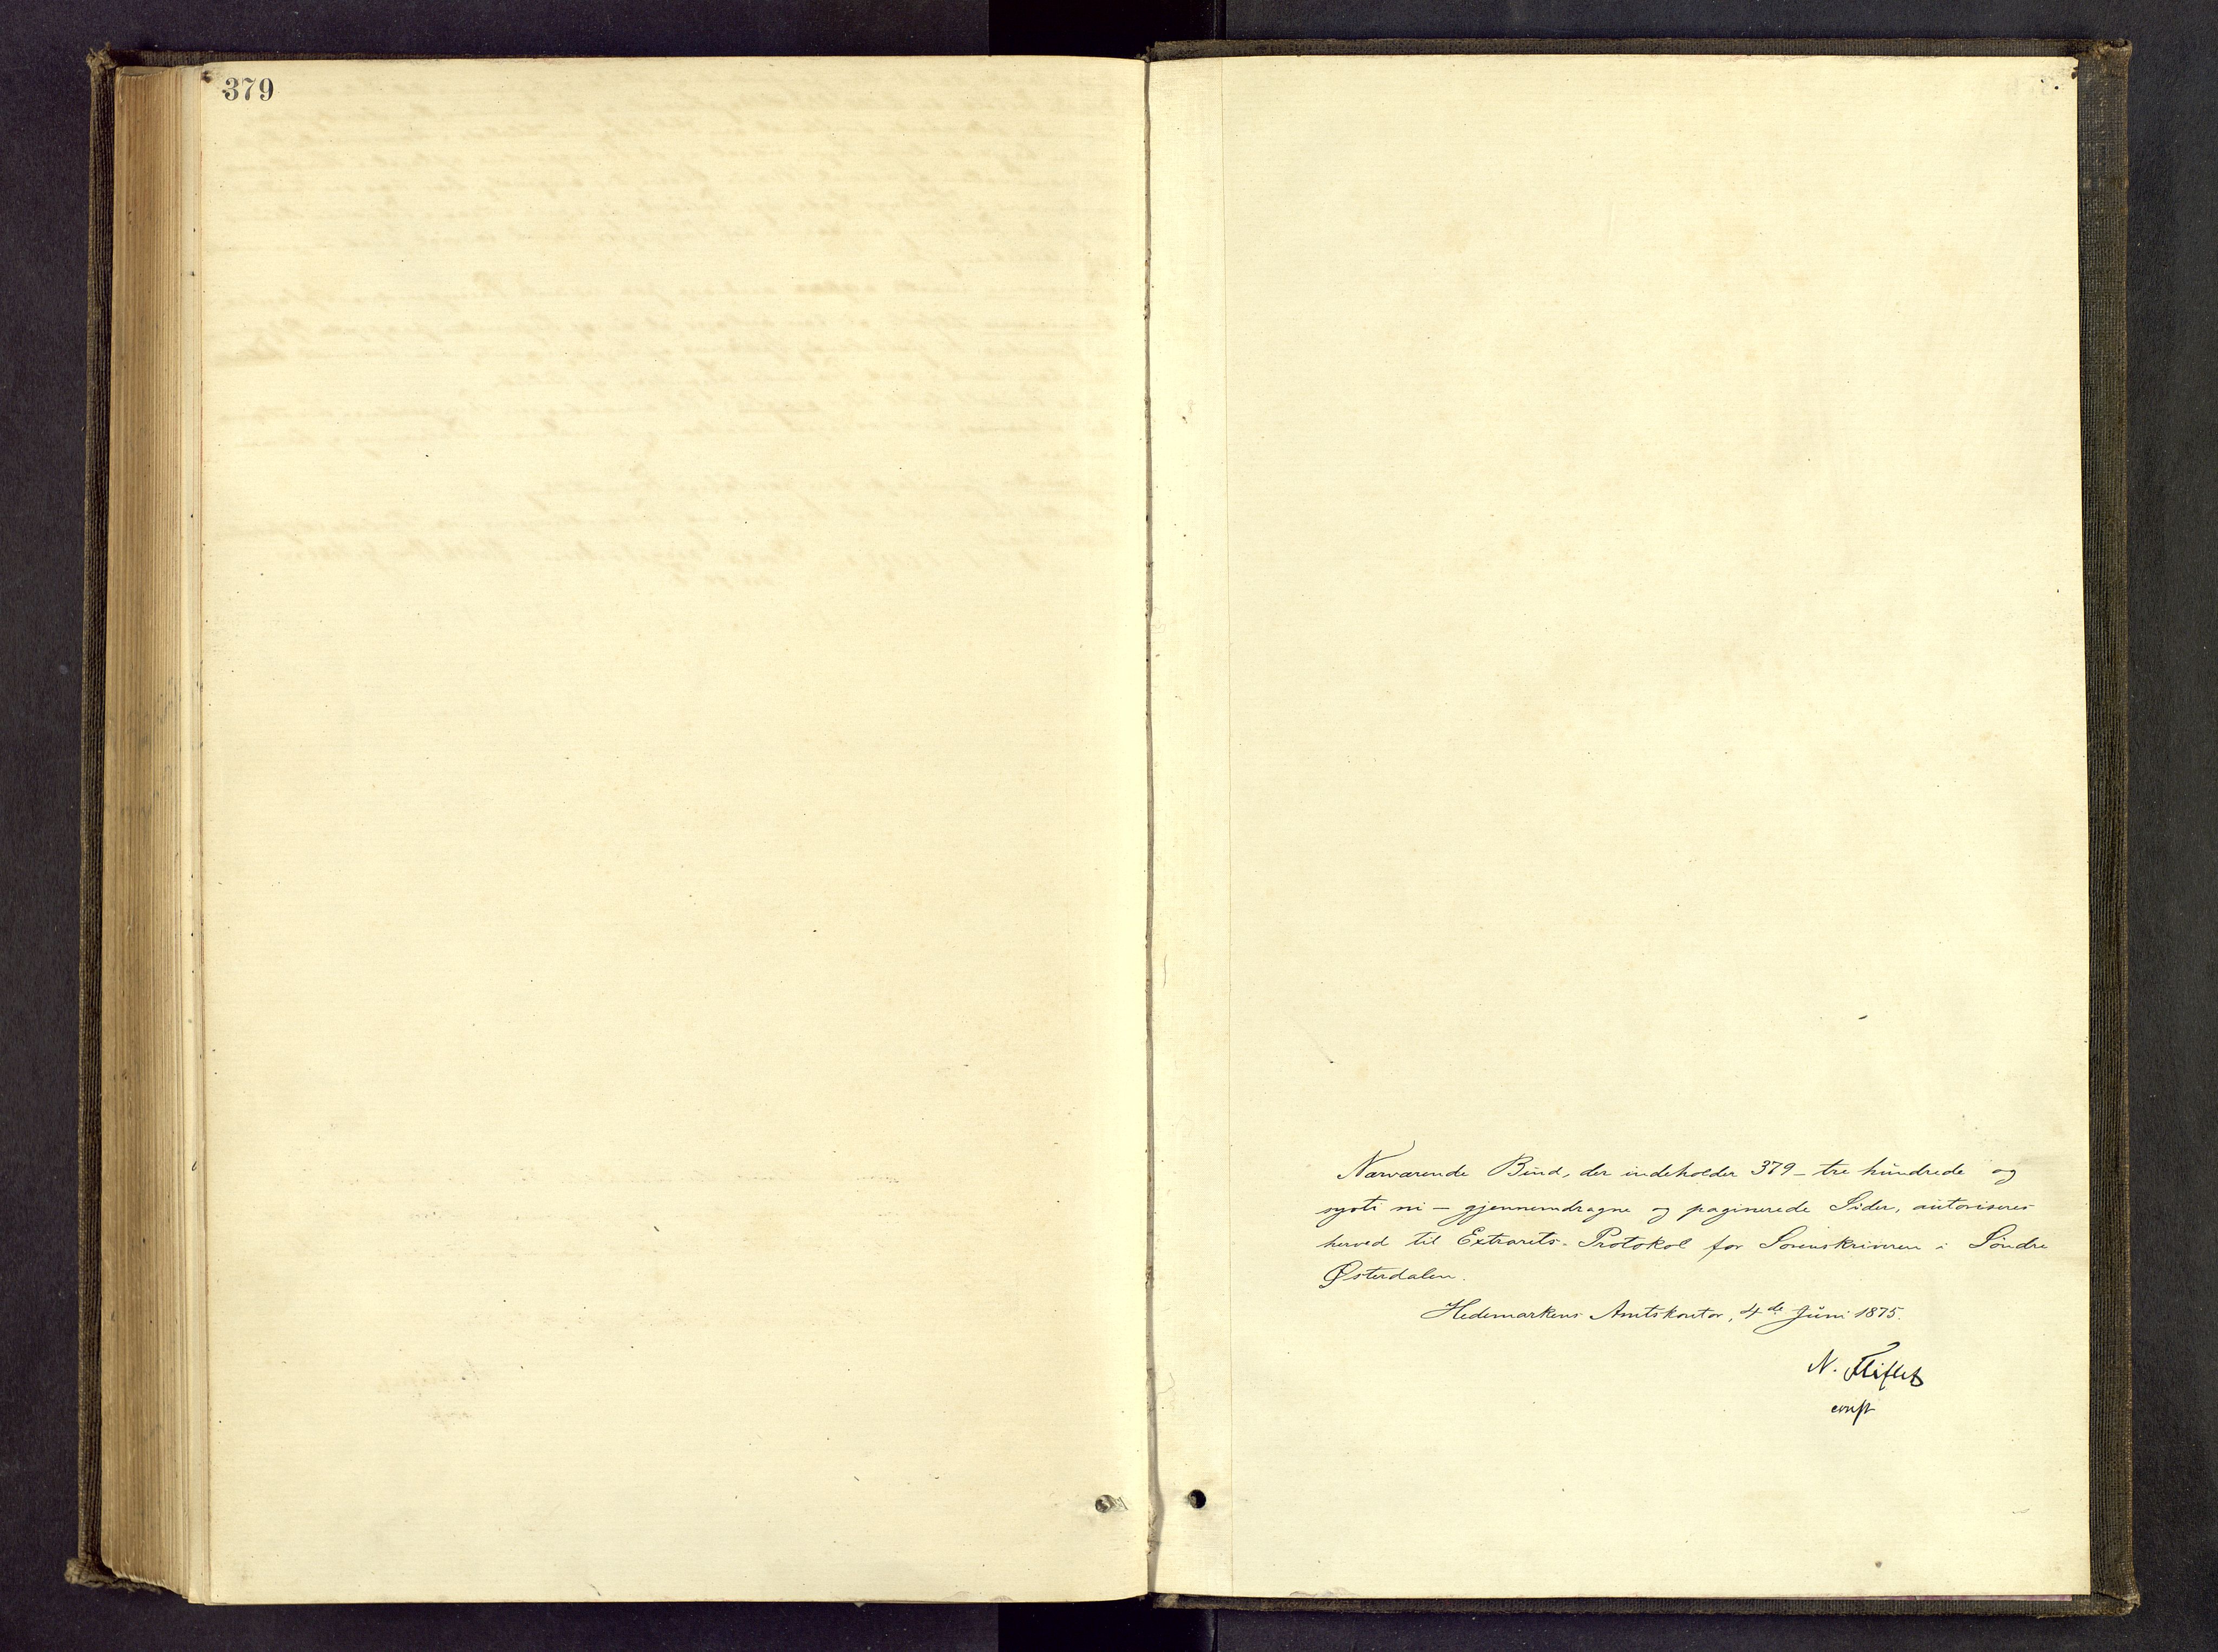 379
Nærværende Bind, der indeholder 379 – tre hundrede og
sytti ni – gjennemdragne og paginerede Sider, autoriseres
herved til Extrarets-Protokol for Sorenskriveren i Søndre
Østerdalen.
Hedemarkens Amtskontor, 4de Juni 1875.
N.
const